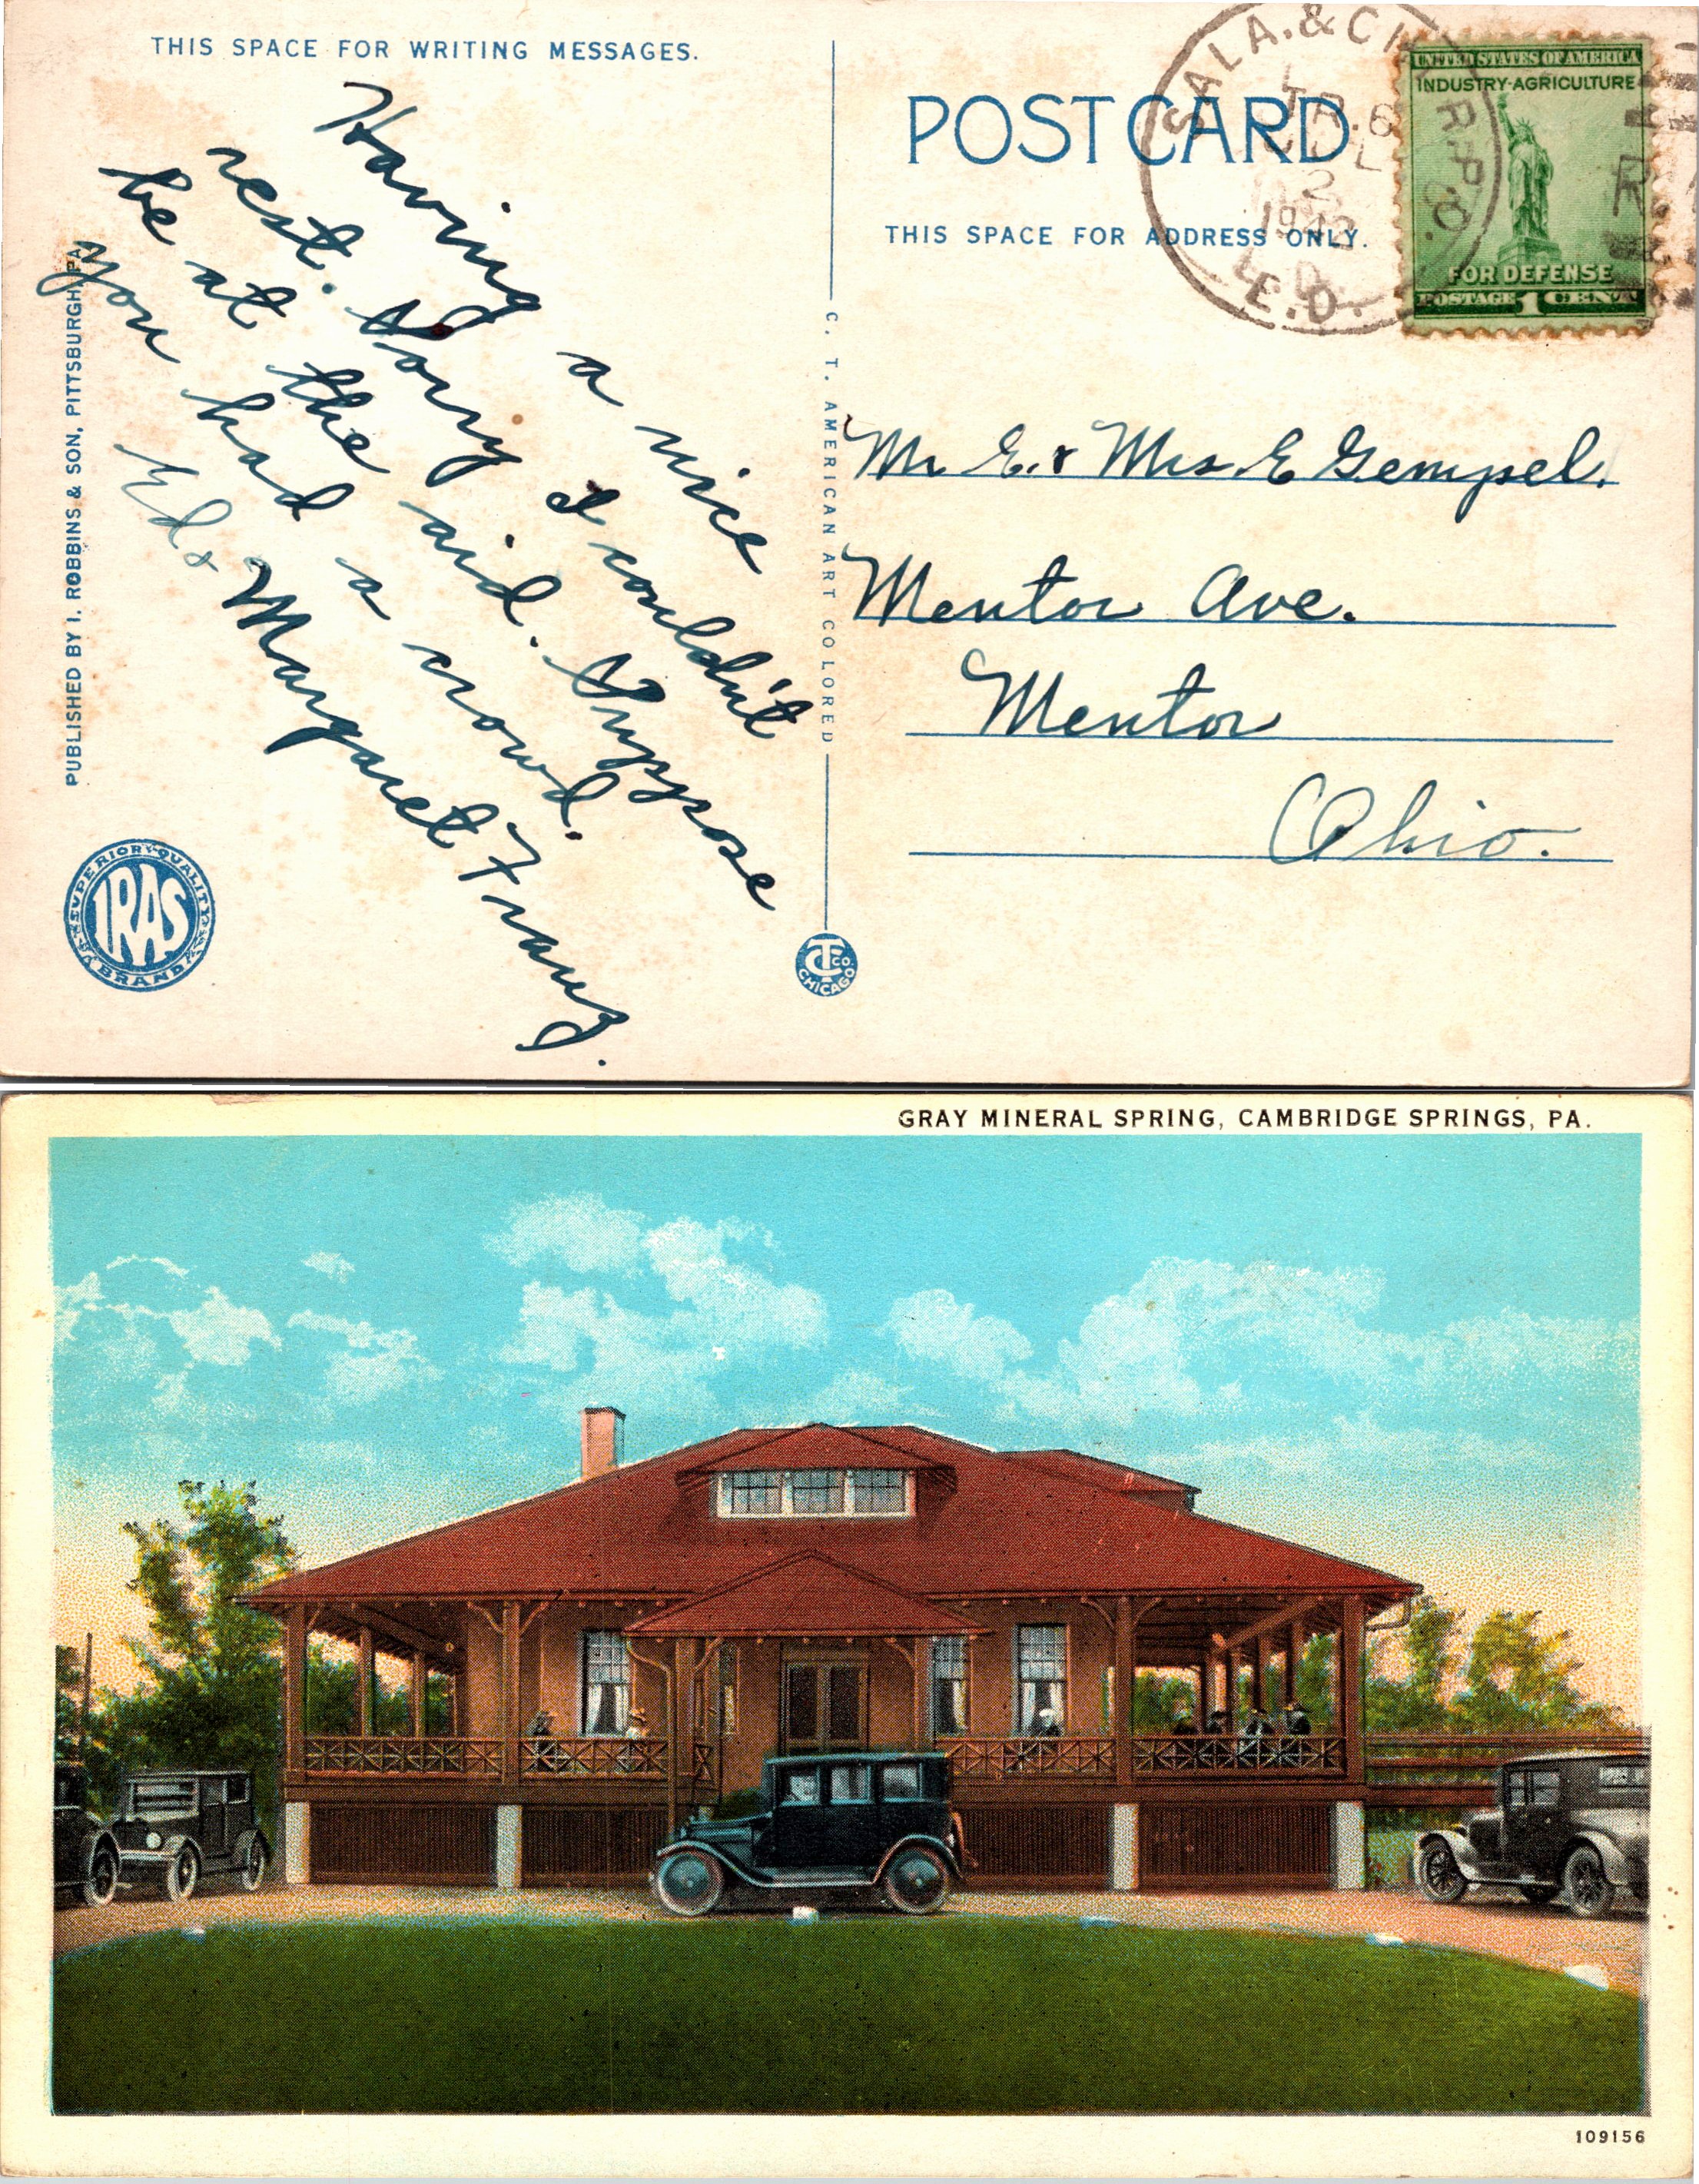 THIS SPACE FOR WRITING MESSAGES.
Having a nice
rest. Sorry I couldn't
be at the aid. Suppose
you had a crowd.
Ed & Margaret Franz.
PUBLISHED BY I. ROBBINS & SON, PITTSBURGH, PA.
SUPERIOR QUALITY
IRAS
BRAND
C. T. AMERICAN ART COLORED
CT CO.
CHICAGO
POST CARD
THIS SPACE FOR ADDRESS ONLY.
SALA. & CHI. R.P.O.
TR. 6
JUL
2
1942
E.D.
UNITED STATES OF AMERICA
INDUSTRY-AGRICULTURE
FOR DEFENSE
POSTAGE 1 CENT
Mr E. & Mrs E Gempel.
Mentor Ave.
Mentor
Ohio.
GRAY MINERAL SPRING, CAMBRIDGE SPRINGS, PA.
109156